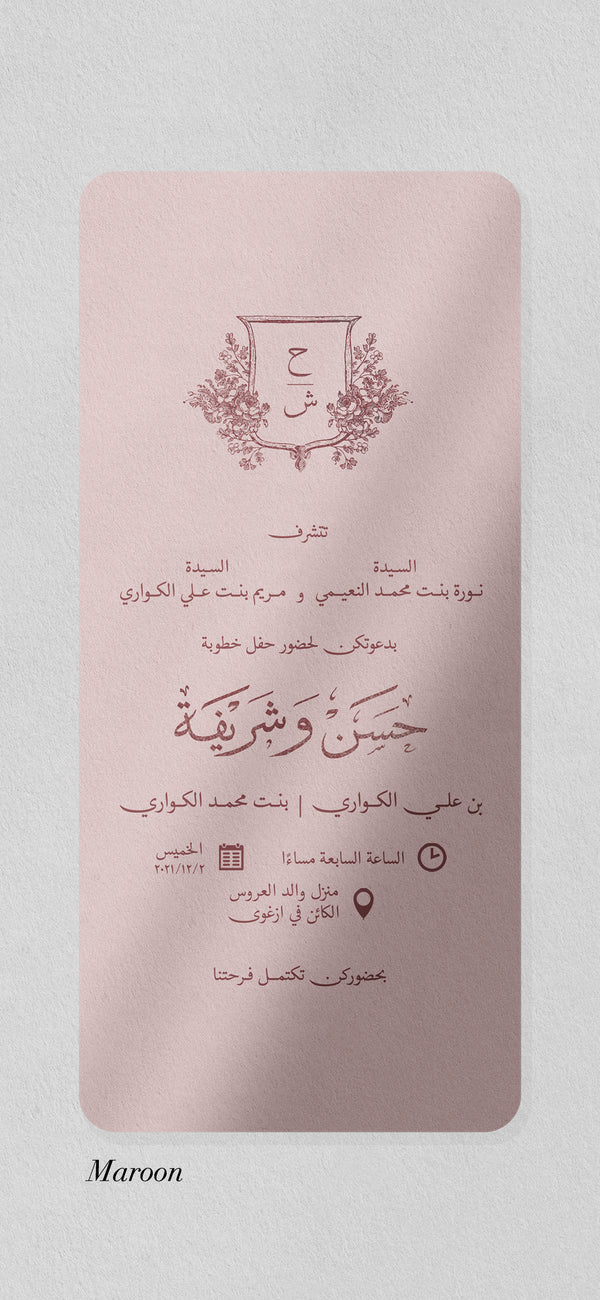 ح
ش
تتشرف
السيدة السيدة
نورة بنت محمد النعيمي و مريم بنت علي الكواري
بدعوتكن لحضور حفل خطوبة
حَسَن وَشَريفَة
بن علي الكواري | بنت محمد الكواري
الساعة السابعة مساءًا
الخميس
٢٠٢١/١٢/٢
منزل والد العروس
الكائن في ازغوى
بحضوركن تكتمل فرحتنا
Maroon